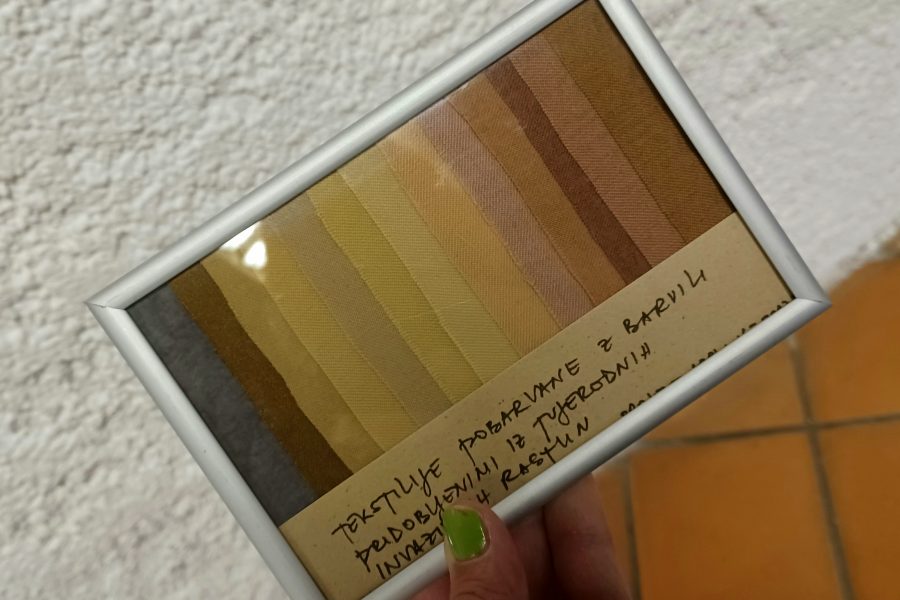 TEKSTILIJE POBARVANE Z BARVILI
PRIDOBLJENIMI IZ TUJERODNIH
RASTLIN